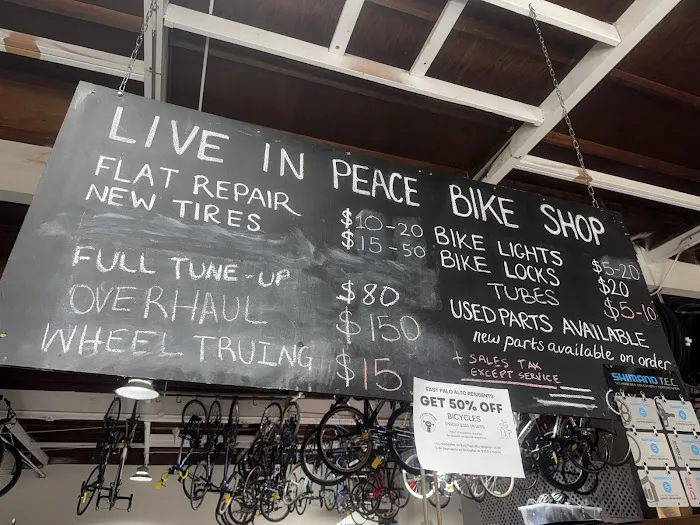 LIVE IN PEACE BIKE SHOP
FLAT REPAIR $10-20
NEW TIRES $15-50
FULL TUNE-UP $80
OVERHAUL $150
WHEEL TRUING $15
BIKE LIGHTS $5-20
BIKE LOCKS $20
TUBES $5-10
USED PARTS AVAILABLE
new parts available on order
+ SALES TAX
EXCEPT SERVICE
EAST PALO ALTO RESIDENTS
GET 50% OFF
BICYCLES
SHIMANO TEC